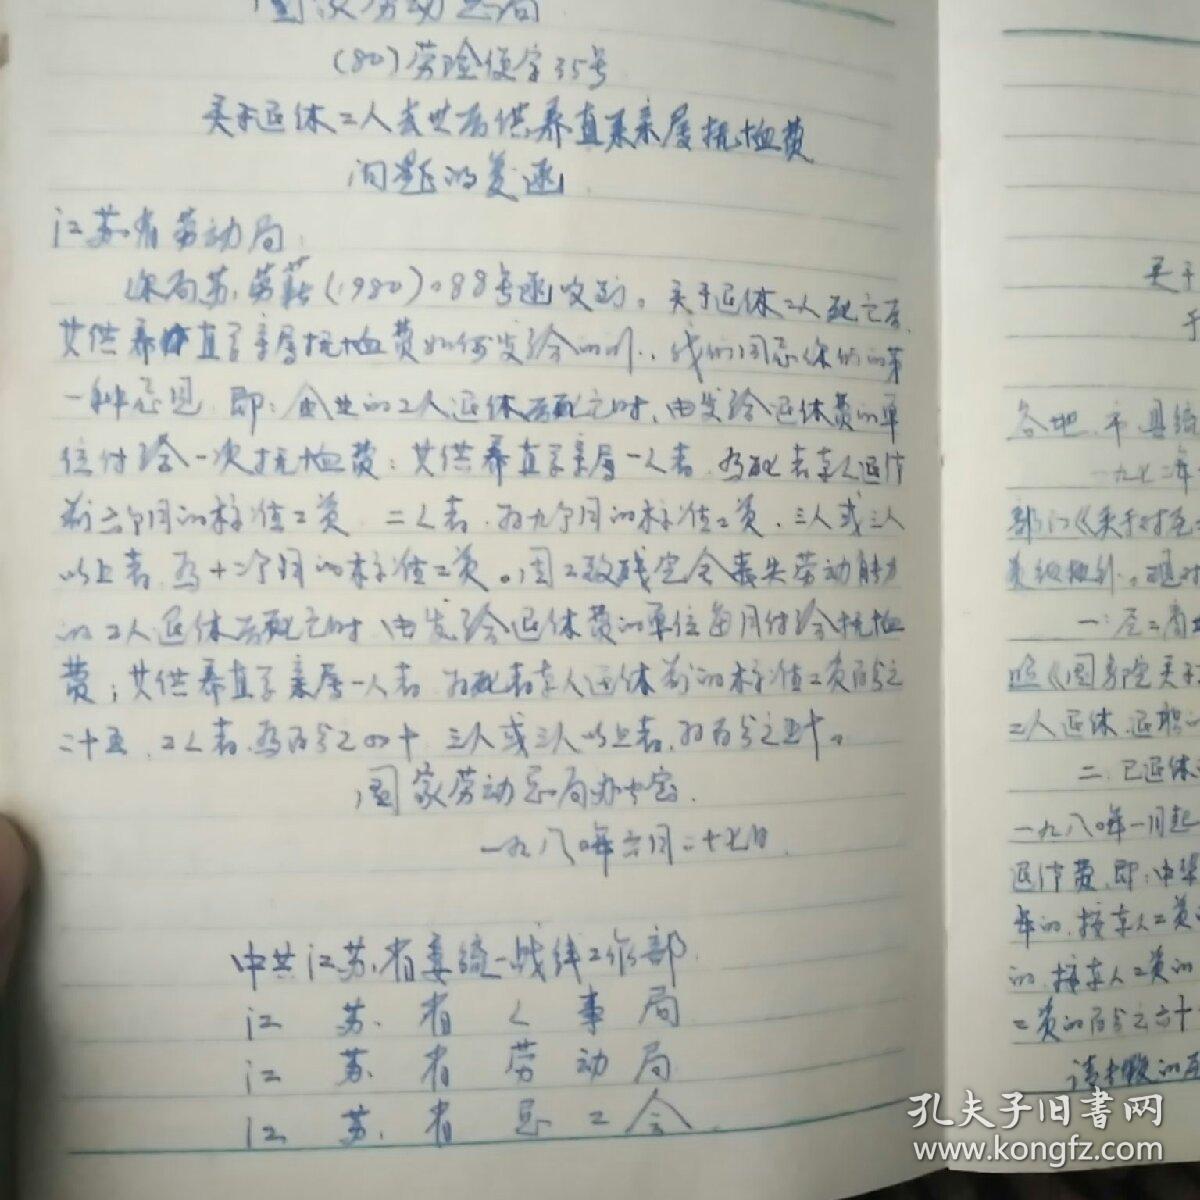 国家劳动总局
(80)劳险便字35号
关于退休工人去世后供养直系亲属抚恤费
问题的复函
江苏省劳动局：
你局苏劳薪(1980)088号函收到。关于退休工人死亡后,
其供养直系亲属抚恤费如何发给问题，我们同意你们的第
一种意见，即：企业的工人退休后死亡时，由发给退休费的单
位付给一次抚恤费：其供养直系亲属一人者，为死者本人退休
前六个月的标准工资，二人者，为九个月的标准工资，三人或三人
以上者，为十二个月的标准工资。因工致残完全丧失劳动能力
的工人退休后死亡时，由发给退休费的单位每月付给抚恤
费；其供养直系亲属一人者，为死者本人退休前的标准工资百分之
二十五，二人者，为百分之四十，三人或三人以上者，为百分之五十。
国家劳动总局办公室
一九八〇年六月二十七日
中共江苏省委统一战线工作部
江苏省人事局
江苏省劳动局
江苏省总工会
关于
各地、市、县统
一九七二年
部门《关于对
一、在工商
照《国务院关于
工人退休、退职
二、已退休
一九八〇年一月起
退休费，即：中华
年的，按本人工资
的，按本人工资的
工资的百分之六十
孔夫子旧书网
www.kongfz.com